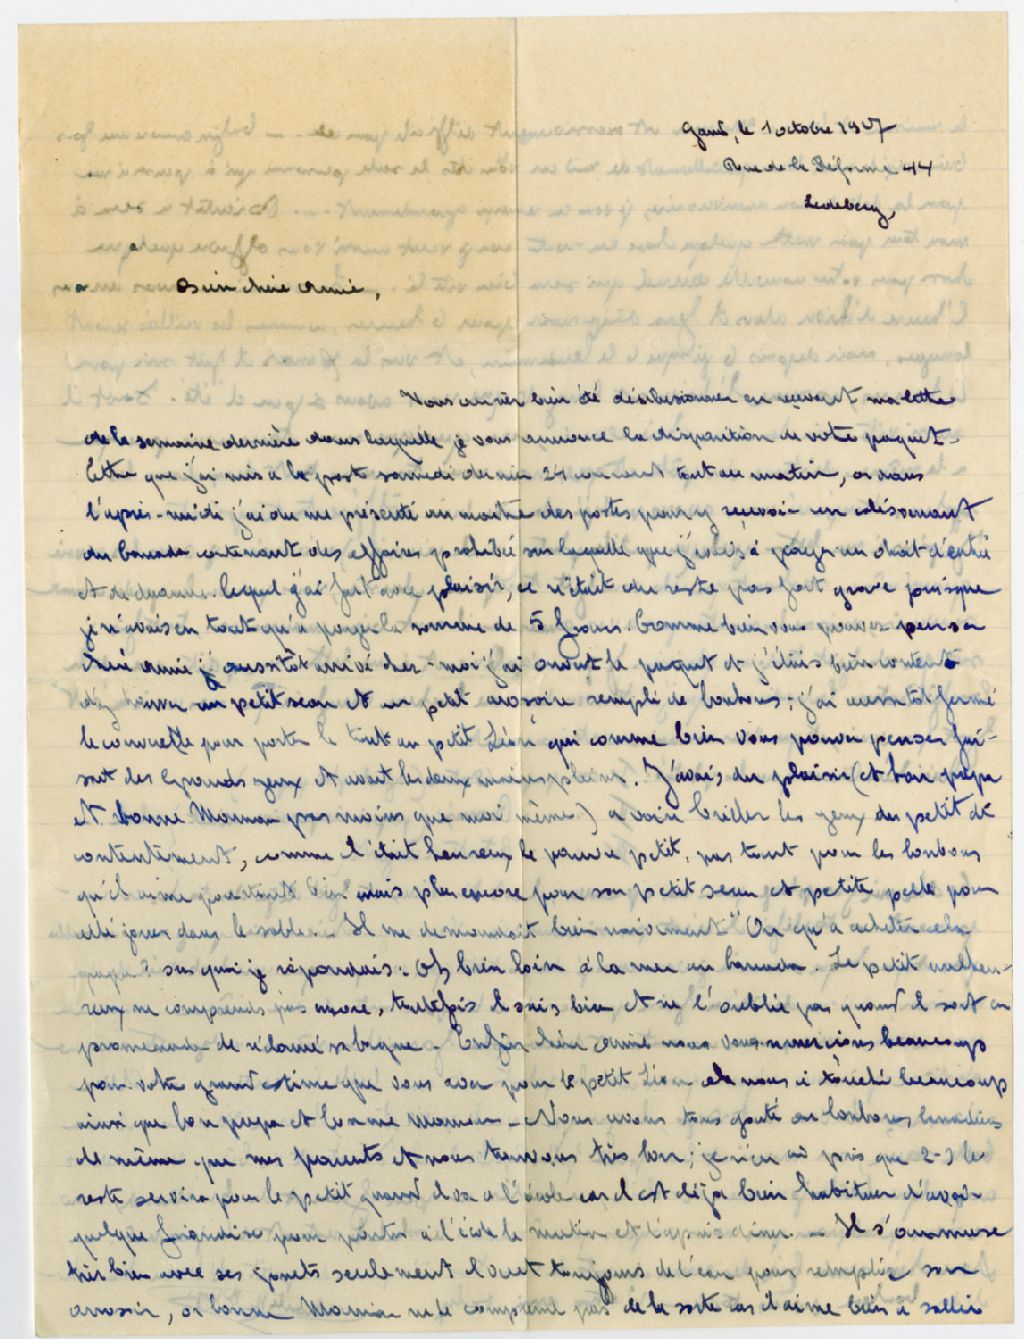 Gand, le 1 octobre 1927
Rue de la Réforme 44
Ledeberg,
Bien chère Amie,
Vous aurez bien été désilusionnée en reçevant ma lettre
de la semaine dernière dans laquelle je vous annonce la disparition de votre paquet.
lettre que j'ai mis a la poste samedi dernier 24 courant tout au matin, or dans
l'après-midi j'ai du me présenté au maitre des postes pour y reçevoir un colis venant
du Canada contenant des affaires prohibé sur laquelle que j'avais à payer un droit d'entré
et de douane. lequel j'ai fait avec plaisir, ce n'était du reste pas fort grave puisque
je n'avais en tout qu'a payer la somme de 5 frcs. Comme bien vous pouvez penser
chère amie j aussitôt arrivé chez-moi j'ai ouvert le paquet et j'étais bien content
d'y trouver un petit seau et un petit arosoire rempli de bonbons; j'ai aussitôt fermé
le couvercle pour porter le tout au petit Léon qui comme bien vous pouvez penser fai-
sait des Grands yeux et avait les deux mains pleins. J'avais du plaisir (et bon papa
et bonne Maman pas moins que moi même) a voir briller les yeux du petit de
contentement, comme il était heureux le pauvre petit, pas tant pour les bonbons
qu'il aime pourtant bien mais plus encore pour son petit seau et petite pelle pour
jouer dans le sable. - Il me demandait bien naivement " On qu'a acheter cela
papa? sur quoi je répondais: Oh bien loin à la mer au Canada. Le petit malheu-
reux ne comprends pas encore, toutefois il sais bien et ne l'oublie pas quand il sort en
promenade de Enfin chère amie nous vous remercions beaucoup
pour votre grand estime que vous avez pour le petit Léon cela nous à touché beaucoup
ainsi que bon papa et bonne Maman - Nous avons tous gouté au bonbons Canadiens
de même que mes parents et nous trouvons très bon; je n'en ai pris que 2-3 le
reste servira pour le petit quand il va a l'école car il est déja bien habituer d'avoir
quelque friandise pour porter à l'école le matin et l'après diner. - Il s'ammuse
très bien avec ses jouets seulement il veut toujours de l'eau pour remplir son
arrosoir, or bonne Maman ne le comprend pas de la sorte car il aime bien à sallir